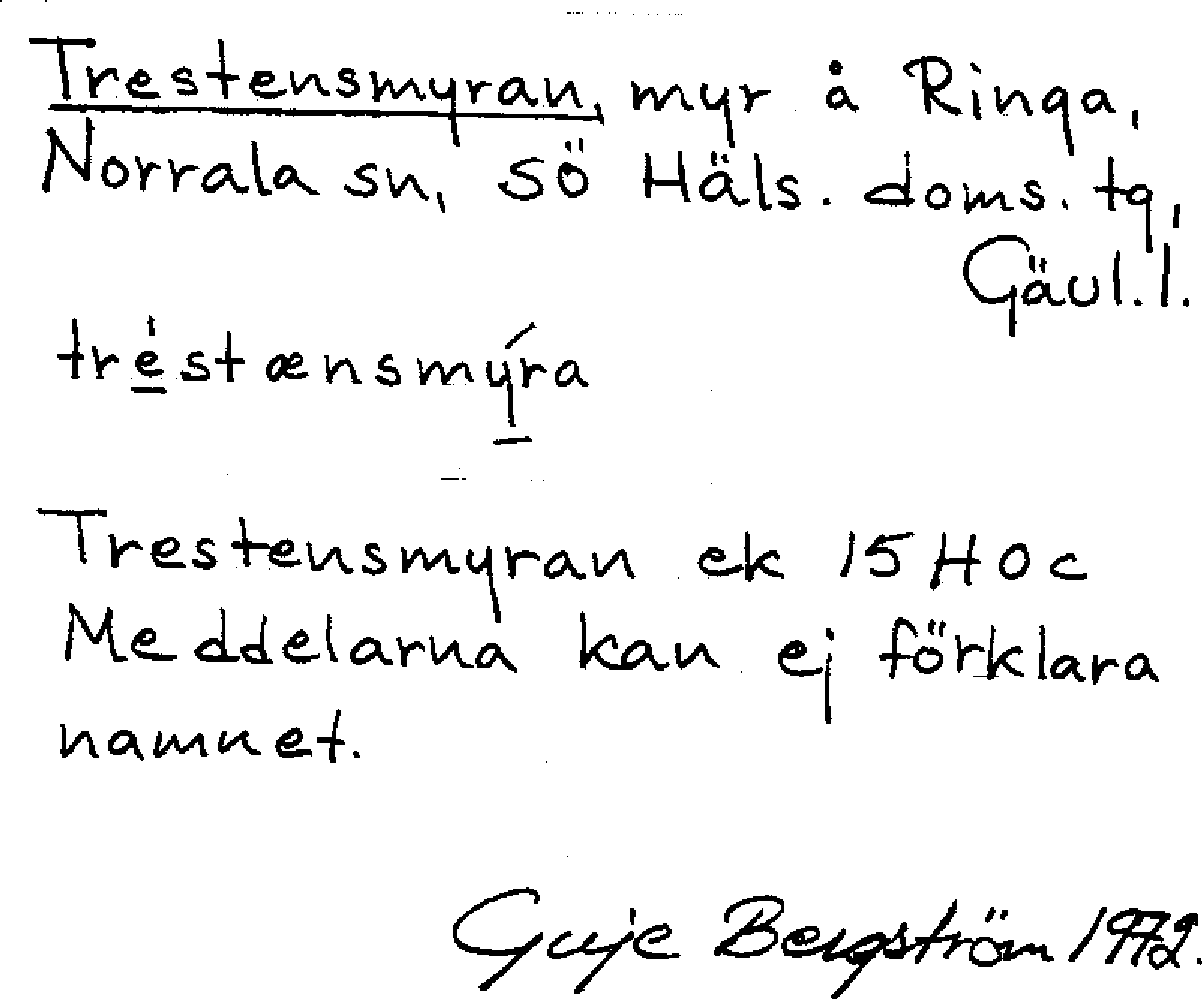 Trestensmyran, myr å Ringa,
Norrala sn, SÖ Häls. doms. tg,
Gävl. l.
tréstænsmýra
Trestensmyran ek 15H 0c
Meddelarna kan ej förklara
namnet.
Guje Bergström 1972.